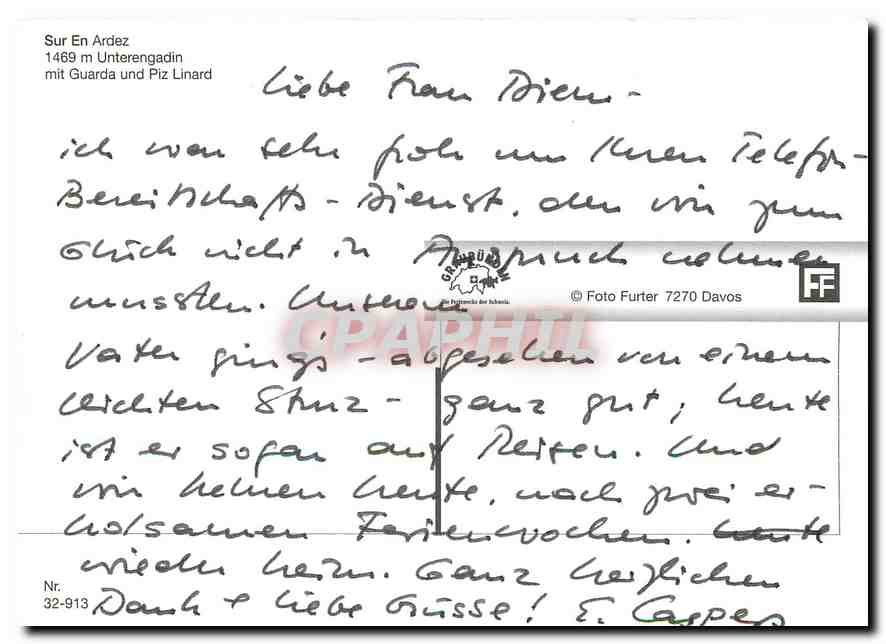 Sur En Ardez
1469 m Unterengadin
mit Guarda und Piz Linard
Liebe Frau Diem -
ich war sehr froh um Ihren Telefon-
Bereitschafts-Dienst, den wir zum
Glück nicht in Anspruch nehmen
mussten. Unserem
GRAUBÜNDEN
Die Ferienecke der Schweiz.
© Foto Furter 7270 Davos
FF
CPAPHIL
Vater ging's - abgesehen von einem
leichten Sturz - ganz gut; heute
ist er sogar auf Reisen. Und
wir kehren heute, nach zwei er-
holsamen Ferienwochen. heute
wieder heim. Ganz herzlichen
Dank + liebe Grüsse! E. Casper
Nr.
32-913